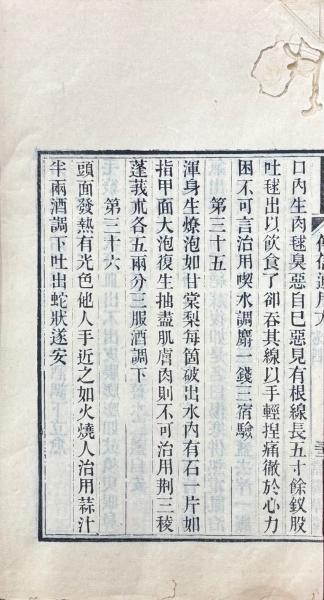 口內生肉毬臭惡自己惡見有根線長五寸餘釵股
吐毬出以飲食了卻吞其線以手輕捏痛徹於心力
困不可言治用喫水調麝一錢三宿驗
第三十五
渾身生燎泡如甘棠梨每箇破出水內有石一片如
指甲面大泡復生抽盡肌膚肉則不可治用荆三稜
蓬莪朮各五兩分三服酒調下
第三十六
頭面發熱有光色他人手近之如火燒人治用蒜汁
半兩酒調下吐出蛇狀遂安